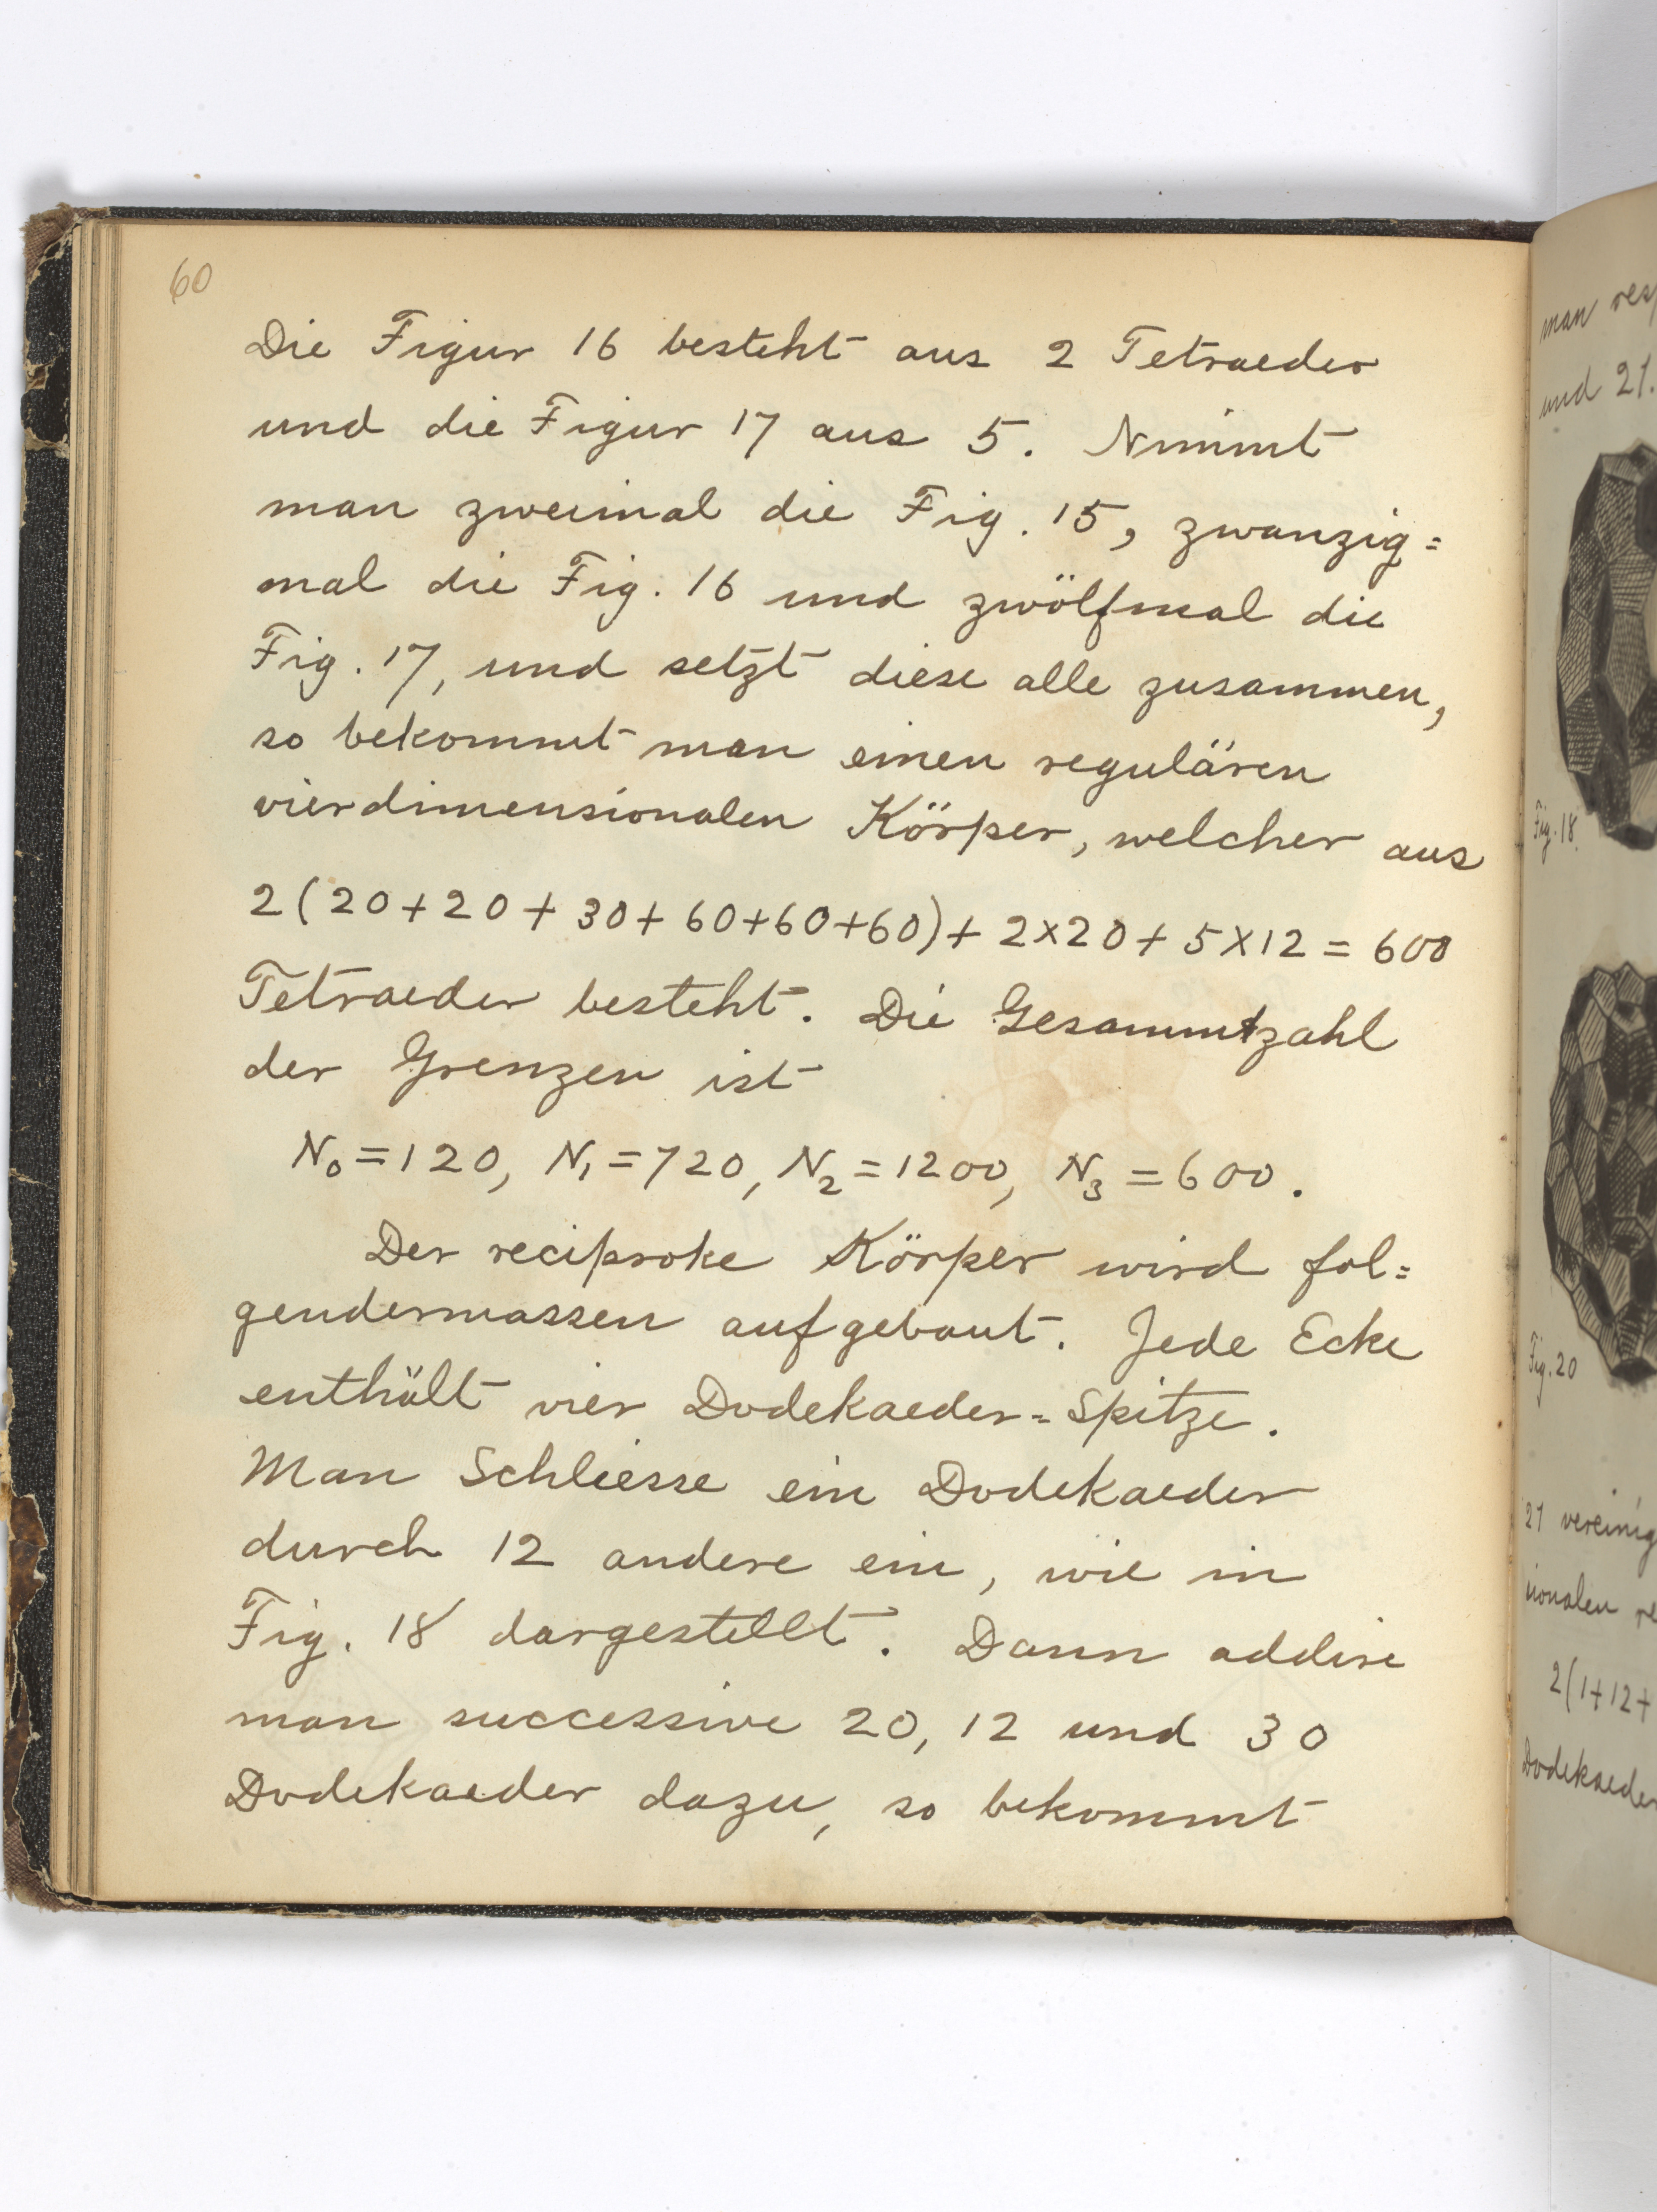 60
Die Figur 16 besteht aus 2 Tetraeder
und die Figur 17 aus 5. Nimmt
man zweimal die Fig. 15, zwanzig=
mal die Fig. 16 und zwölfmal die
Fig. 17, und setzt diese alle zusammen,
so bekommt man einen regulären
vierdimensionalen Körper, welcher aus
2(20+20+30+60+60+60)+2×20+5×12=600
Tetraeder besteht. Die Gesammtzahl
der Grenzen ist
N₀=120, N₁=720, N₂=1200, N₃=600.
Der reciproke Körper wird fol=
gendermassen aufgebaut. Jede Ecke
enthält vier Dodekaeder=Spitze.
Man Schliesse ein Dodekaeder
durch 12 andere ein, wie in
Fig. 18 dargestellt. Dann addire
man successive 20, 12 und 30
Dodekaeder dazu, so bekommt
man res
und 21.
Fig. 18.
Fig. 20
21 vereinig
ionalen re
2(1+12+
Dodekaeder